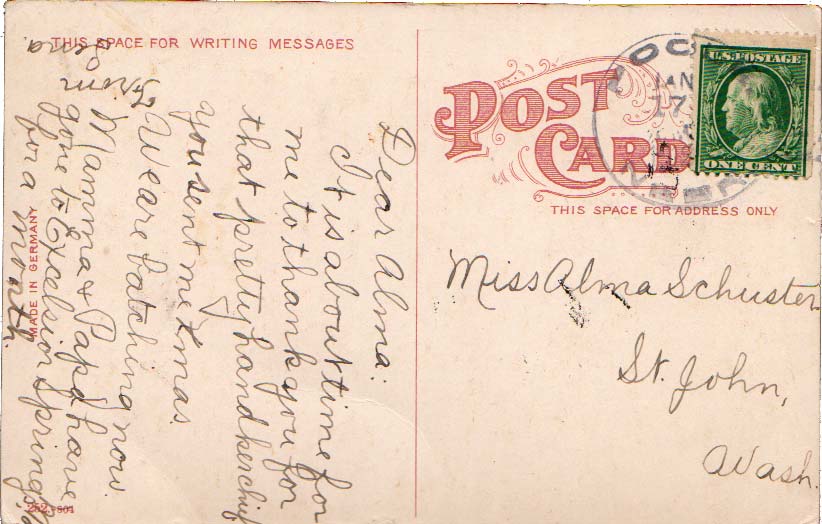 THIS SPACE FOR WRITING MESSAGES
POST
CARD
THIS SPACE FOR ADDRESS ONLY
U.S. POSTAGE
ONE CENT
JAN
17
Dear Alma:
It is about time for
me to thank you for
that pretty handkerchief
you sent me Xmas.
We are batching now.
Mamma & Papa have
gone to Excelsior Springs,
for a month.
Miss Alma Schuster
St. John,
Wash.
MADE IN GERMANY
252-S01